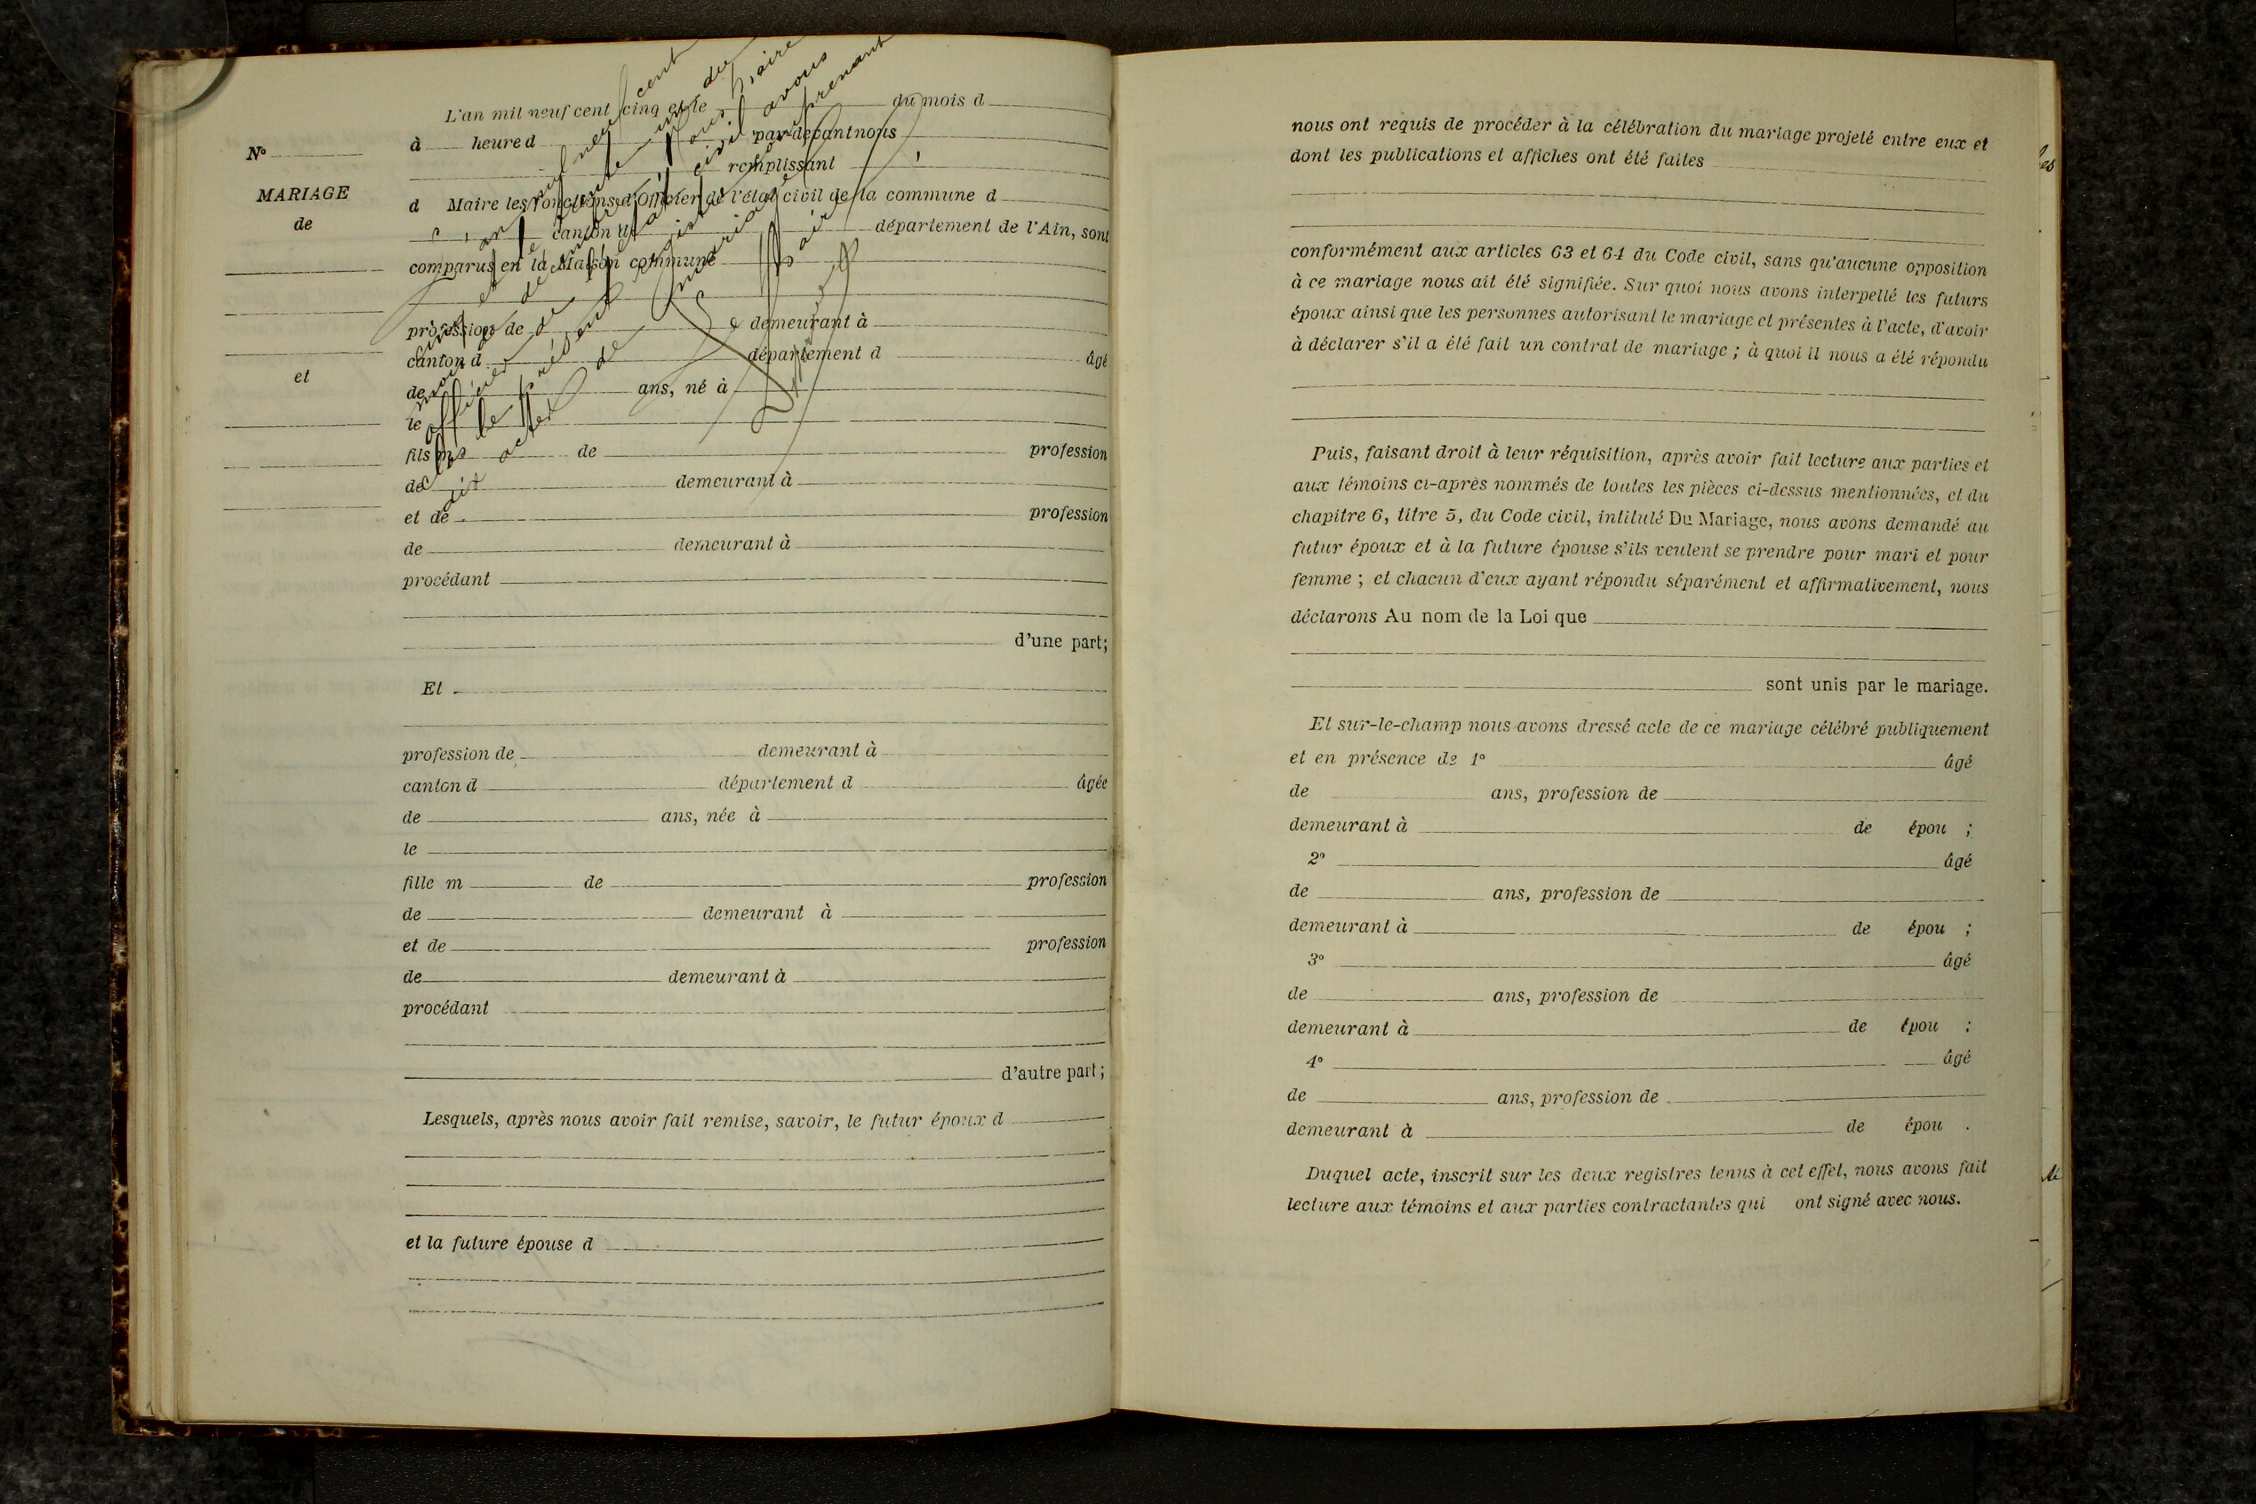 N°
MARIAGE
de
et
L'an mil neuf cent cinq et le du mois d
à heure d par devant nous
remplissant
d Maire les fonctions d'Officier de l'état civil de la commune d
canton d département de l'Ain, sont
comparus en la Maison commune
profession de demeurant à
canton d département d âgé
de ans, né à
le
fils m de profession
de demeurant à
et de profession
de demeurant à
procédant
d'une part;
Et
profession de demeurant à
canton d département d âgée
de ans, née à
le
fille m de profession
de demeurant à
et de profession
de demeurant à
procédant
d'autre part;
Lesquels, après nous avoir fait remise, savoir, le futur époux d
et la future épouse d
L'an mil neuf cent
cinq et le trente un du
mois de décembre Nous Maire
officier de l'état civil avons
clos le présent registre comprenant
dix actes de mariage
Le Maire
nous ont requis de procéder à la célébration du mariage projeté entre eux et
dont les publications et affiches ont été faites
conformément aux articles 63 et 64 du Code civil, sans qu'aucune opposition
à ce mariage nous ait été signifiée. Sur quoi nous avons interpellé les futurs
époux ainsi que les personnes autorisant le mariage et présentes à l'acte, d'avoir
à déclarer s'il a été fait un contrat de mariage ; à quoi il nous a été répondu
Puis, faisant droit à leur réquisition, après avoir fait lecture aux parties et
aux témoins ci-après nommés de toutes les pièces ci-dessus mentionnées, et du
chapitre 6, titre 5, du Code civil, intitulé Du Mariage, nous avons demandé au
futur époux et à la future épouse s'ils veulent se prendre pour mari et pour
femme ; et chacun d'eux ayant répondu séparément et affirmativement, nous
déclarons Au nom de la Loi que
sont unis par le mariage.
Et sur-le-champ nous avons dressé acte de ce mariage célébré publiquement
et en présence de 1° âgé
de ans, profession de
demeurant à de épou ;
2° âgé
de ans, profession de
demeurant à de épou ;
3° âgé
de ans, profession de
demeurant à de épou ;
4° âgé
de ans, profession de
demeurant à de épou .
Duquel acte, inscrit sur les deux registres tenus à cet effet, nous avons fait
lecture aux témoins et aux parties contractantes qui ont signé avec nous.